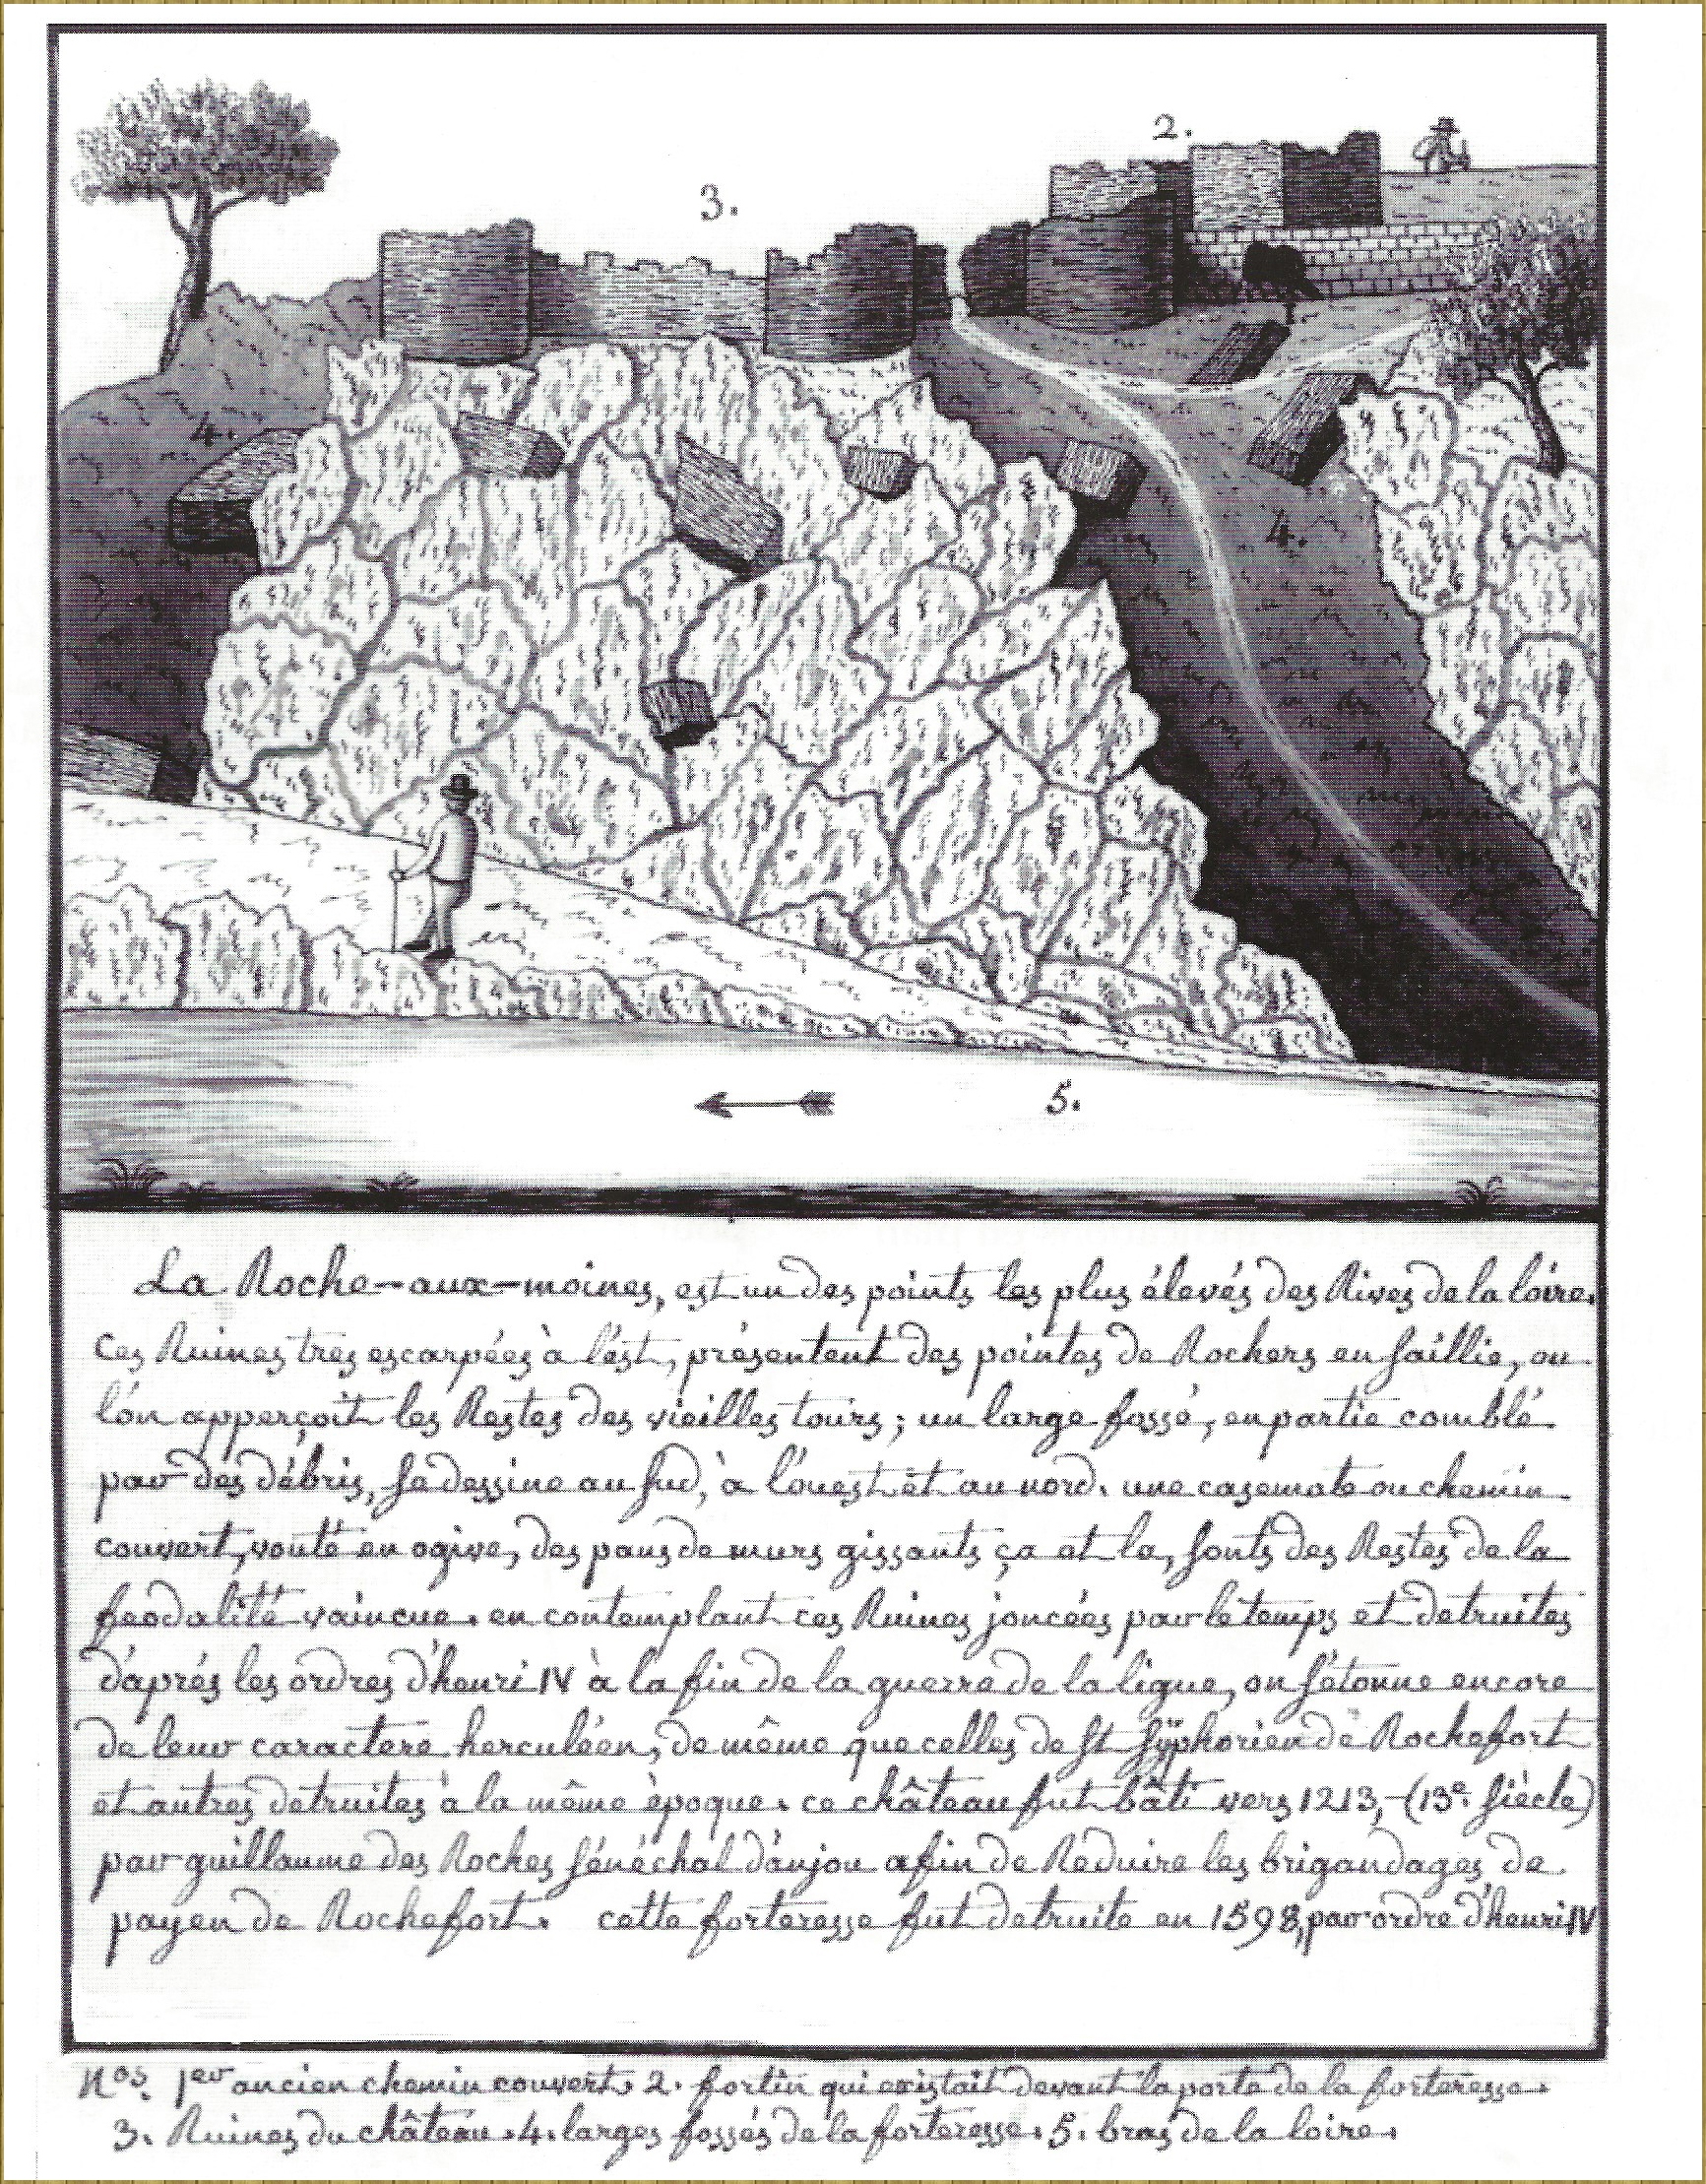 2.
3.
4.
4.
5.
La Roche-aux-moines, est un des points les plus élevés des Rives de la loire.
Ces Ruines tres escarpées à l'est, présentent des pointes de Rochers en saillie, ou
l'on apperçoit les Restes des vieilles tours; un large fossé, en partie comblé
par des débris, se dessine au sud, à l'ouest et au nord. une casemate ou chemin
couvert, vouté en ogive, des pans de murs gissants ça et la, sonts des Restes de la
feodalité vaincue. en contemplant ces Ruines joncées par le temps et detruites
d'aprés les ordres d'henri IV à la fin de la guerre de la ligue, on s'étonne encore
de leur caractere herculéen, de même que celles de St Syphorien de Rochefort
et autres detruites à la même èpoque. ce château fut bâti vers 1213,-(13e. siècle)
par guillaume des Roches sénéchal d'anjou afin de Réduire les brigandages, de
payen de Rochefort. cette forteresse fut detruite en 1598, par ordre d'henri IV
Nos. 1er ancien chemin couvert. 2. fortin qui existait devant la porte de la forteresse.
3. Ruines du château. 4. larges fossés de la forteresse. 5. bras de la loire.